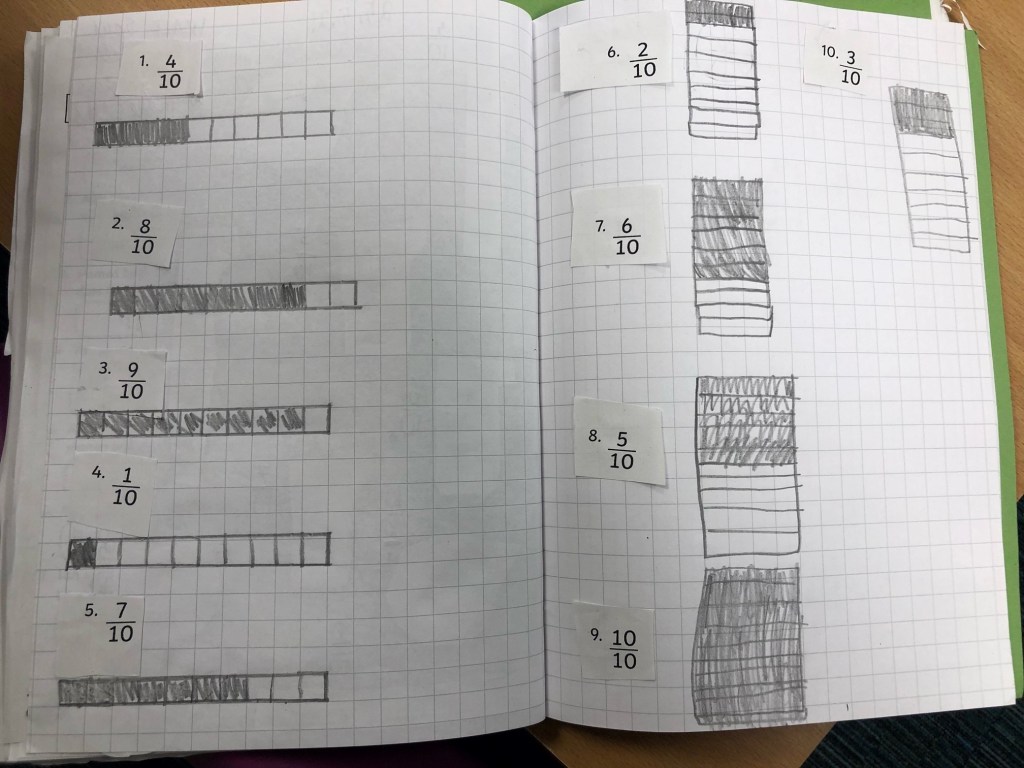 1. 4/10
2. 8/10
3. 9/10
4. 1/10
5. 7/10
6. 2/10
7. 6/10
8. 5/10
9. 10/10
10. 3/10